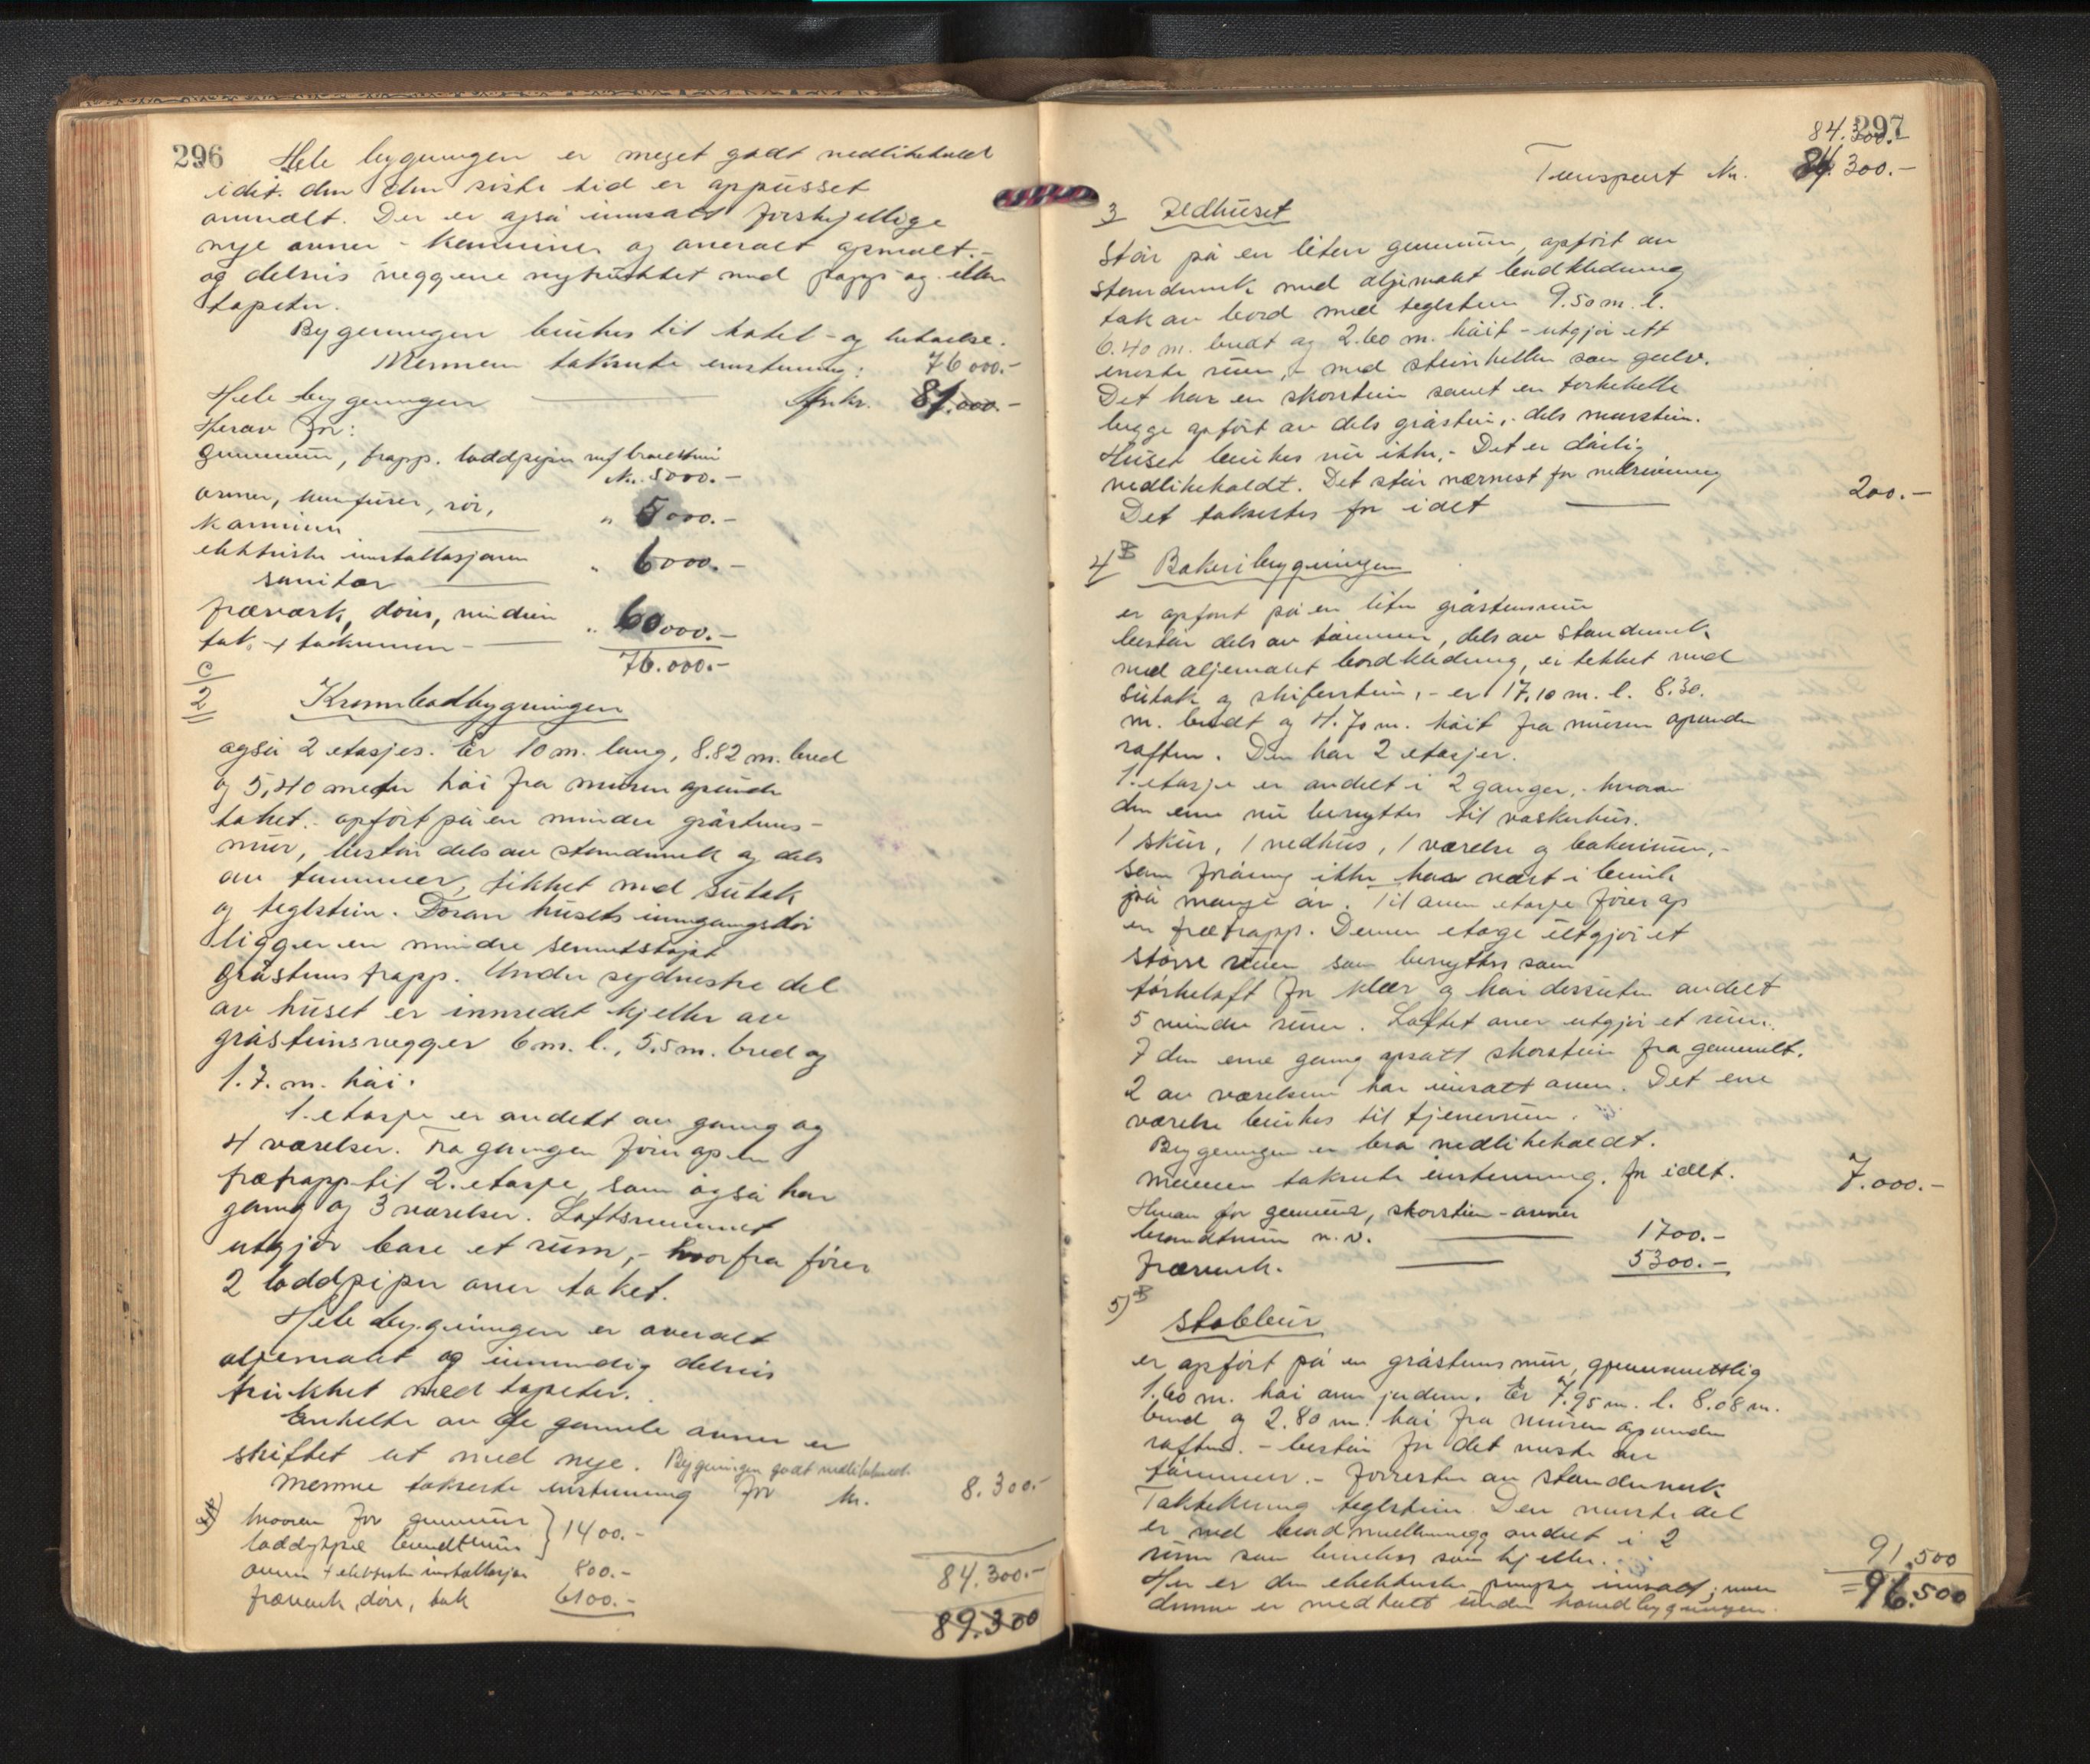 296
Hele bygningen er meget godt vedlikeholdt
idet den den siste tid er oppusset
overalt. Der er også innsatt forskjellige
nye ovner - kaminer og overalt opmalt.-
og delvis veggene nytrukket med papp og eller
tapeter.
Bygningen brukes til hotel - og beboelse.
Mennene takserte enstemmig: 76000.-
Hele bygningen for kr. 81.000.-
Herav for:
grunnmur, trapp, loddpiper m/ brandmur
kr. 5000.-
ovner, komfurer, rör,
kaminer " 5000.-
elektriske installasjoner
sanitær " 6000.-
treverk, dörer, vinduer
tak, + takrenner - " 60000.-
76.000.-
C
2 Krambodbygningen
også 2 etasjes. Er 10 m. lang, 8.82 m. bred
og 5,40 meter höi fra muren opunder
taket.- opfört på en mindre gråstens-
mur, består dels av stenderverk og dels
av tømmer, tekket med sutak
og teglstein. Foran husets inngangsdör
ligger en mindre sementstöpt
gråstens trapp. Under sydvestre del
av huset er innredet kjeller av
gråsteinsvegger 6 m. l., 5,5 m. bred og
1.7. m. höi.
1. etasje er avdelt av gang og
4 værelser. Fra gangen förer op en
tretrapp til 2. etasje, som også har
gang og 3 værelser. Loftsrummet
utgjör bare et rum,- hvorfra förer
2 loddpiper over taket.
Hele bygningen er overalt
oljemalt og innvendig delvis
trukket med tapeter.
Enkelte av de gamle ovner er
skiftet ut med nye. Bygningen godt vedlikeholdt.
Mennene takserte enstemmig for kr. 8.300.-
hvorav for grunnmur
loddpipe brandmur } 1400.-
ovner + elektriske installasjon 800.-
treverk, dörer, tak 6100.-
84.300.-
89.300
297
84.300.-
Transport kr. 84.300.-
3 Ildhuset
Står på en liten grunnmur, opfört av
stenderverk med oljemalt bordkledning
tak av bord med teglstein 9.50 m. l.
6.40 m. bredt og 2.60 m. höit - utgjör ett
eneste rum,- med steinheller som gulv.
Det har en skorstein samt en törkehelle
begge opfört av dels gråstein, dels murstein.
Huset brukes nu ikke.- Det er dårlig
vedlikeholdt. Det står nærmest for nedrivning
Det takseres for i det 200.-
4 B Bakeribygningen
er opfört på en liten gråstensmur
består dels av tömmer, dels av stenderverk
med oljemalt bordkledning, er tekket med
sutak og skiferstein,- er 17,10 m. l. 8.30.
m. bredt og 4.70 m. höit fra muren opunder
raften. Den har 2 etasjer.
1. etasje er avdelt i 2 ganger,- hvorav
den ene nu benyttes til vaskerhus.
1 skur, 1 vedhus, 1 værelse og bakerirum,-
som forövrig ikke har vært i bruk
på mange år. Til annen etasje förer op
en tretrapp. Denne etage utgjör et
större rum som benyttes som
törkeloft for klær og har dessuten avdelt
5 mindre rum. Loftet over utgjör et rum.
I den ene gang opsatt skorstein fra gammelt.
2 av værelsene har innsatt ovner. Det ene
værelse brukes til tjenerrum.
Bygningen er bra vedlikeholdt.
Mennene takserte enstemmig. for i det. 7.000.-
Herav for grunnmur, skorstein - ovner
brandmur m. v. 1700.-
treverk. 5300.-
5) B
Stabbur
er opfört på en gråstens mur, gjennemsnittlig
1.60 m. höi over jorden. Er 7.95 m. l. 8.08 m.
bred og 2.80 m. höi fra muren opunder
raften. - består for det meste av
tömmer.- forresten av stenderverk
Taktekning teglstein. Den nederste del
er ved bordmellemvegg avdelt i 2
rum som benyttes som kjeller.
Her er den elektriske pumpe innsatt; men
denne er medtatt under hovedbygningen.
91.500
=96.500